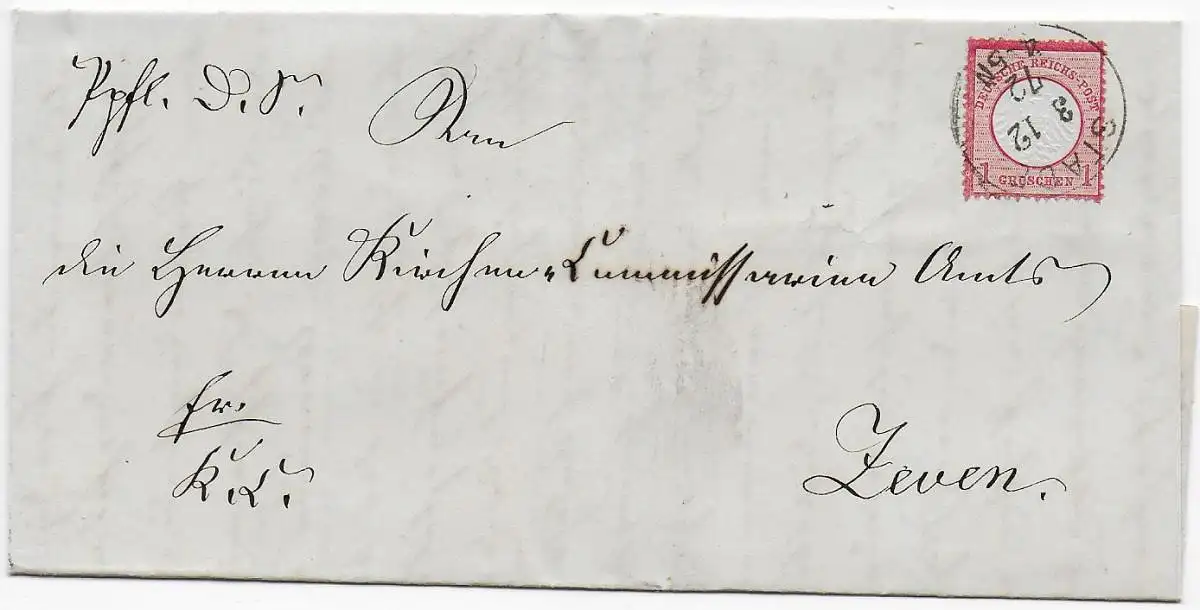 Ppfl. D. S. An
die Herren Kirchen-Commissarien Amts
fr.
K. C.
Zeven.
DEUTSCHE REICHS-POST
1 GROSCHEN 1
STADE
3 12
72
4-5N